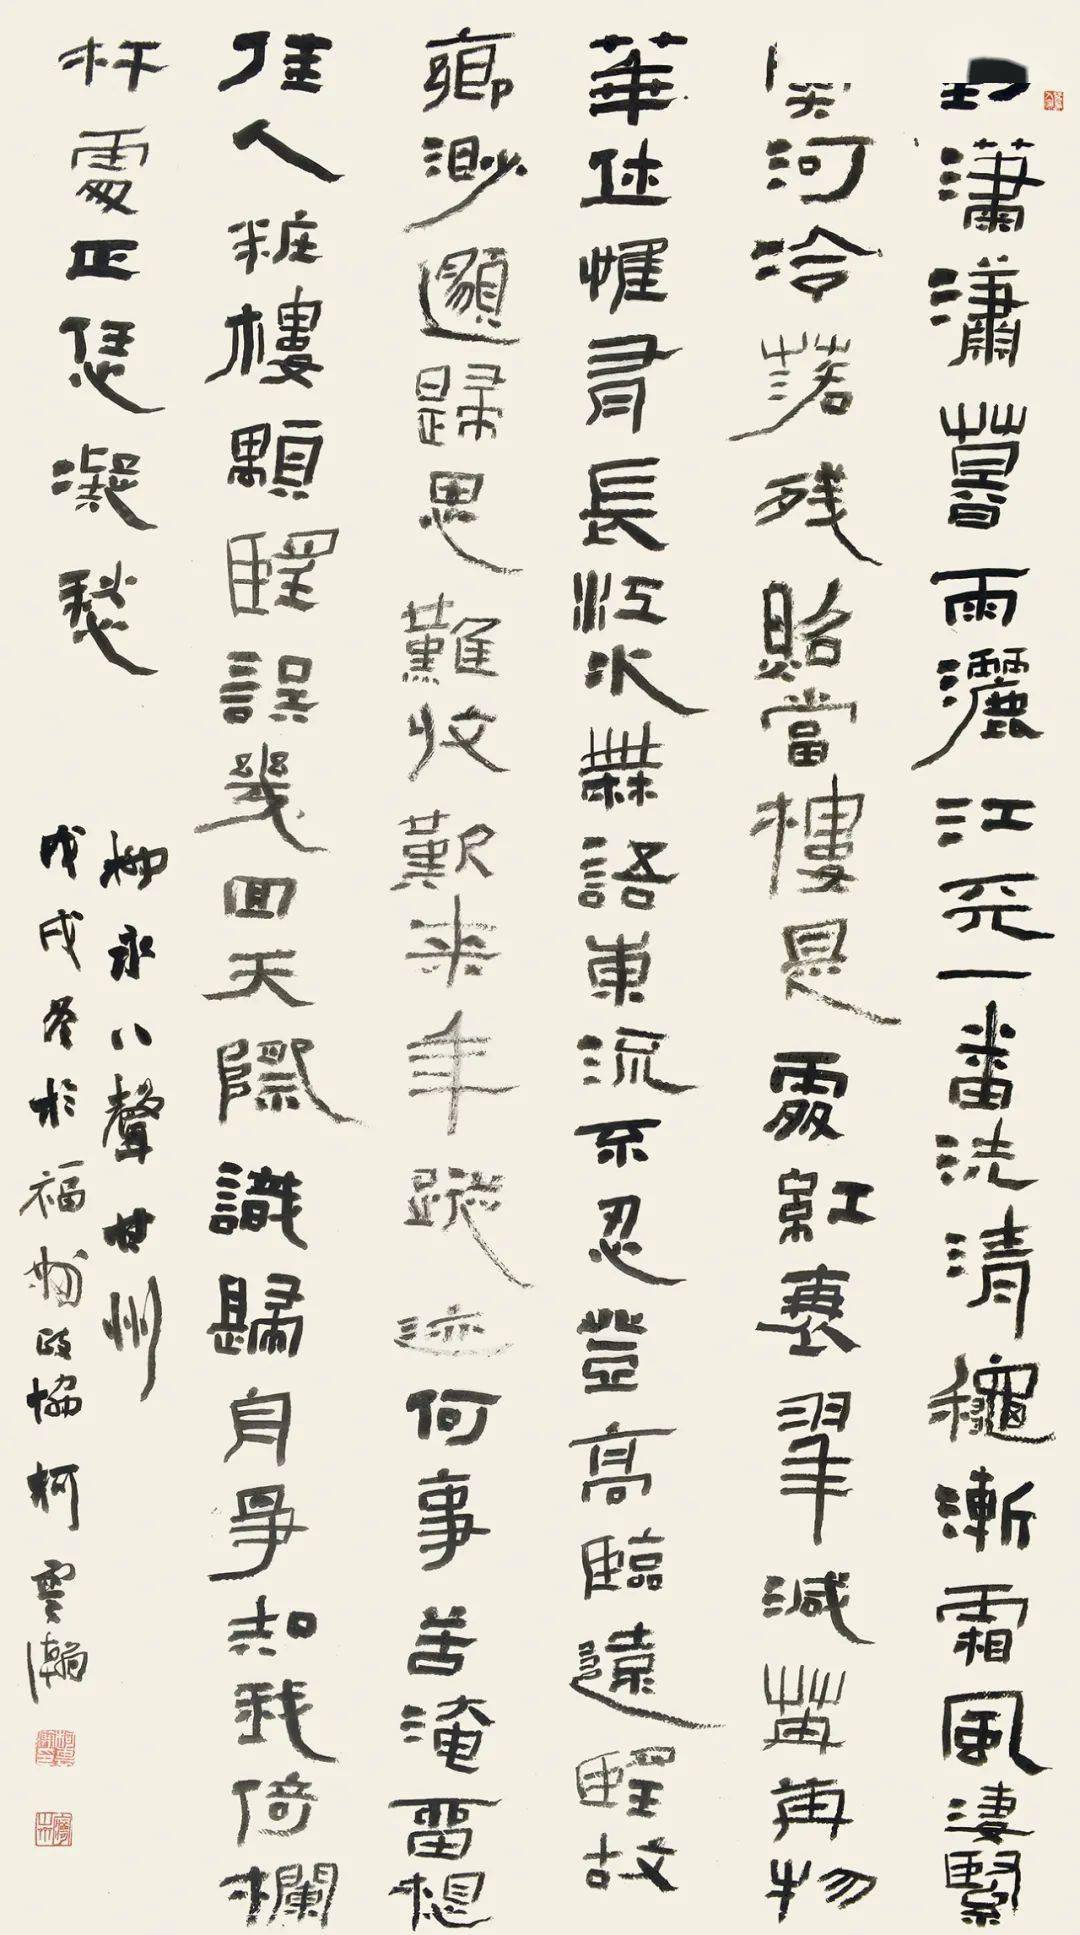 對瀟瀟暮雨灑江天一番洗清秋漸霜風淒緊
關河冷落残照當樓是處紅衰翠減苒苒物
華休惟有長江水無語東流不忍登高臨遠望故
鄉渺邈歸思難收歎来年蹤迹何事苦淹留想
佳人粧樓顒望誤幾回天際識歸舟爭知我倚欄
杆處正恁凝愁
柳永八聲甘州
戊戌冬於福州政協柯雲瀚